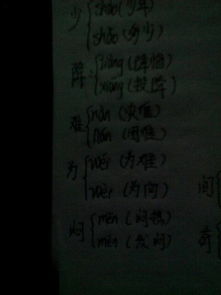 少 shào (少年)
shǎo (多少)
降 jiàng (降)
xiáng (投降)
难 nàn (灾难)
nán (困难)
为 wéi (为难)
wèi (为何)
间
闷 mēn (闷热)
mèn (发闷)